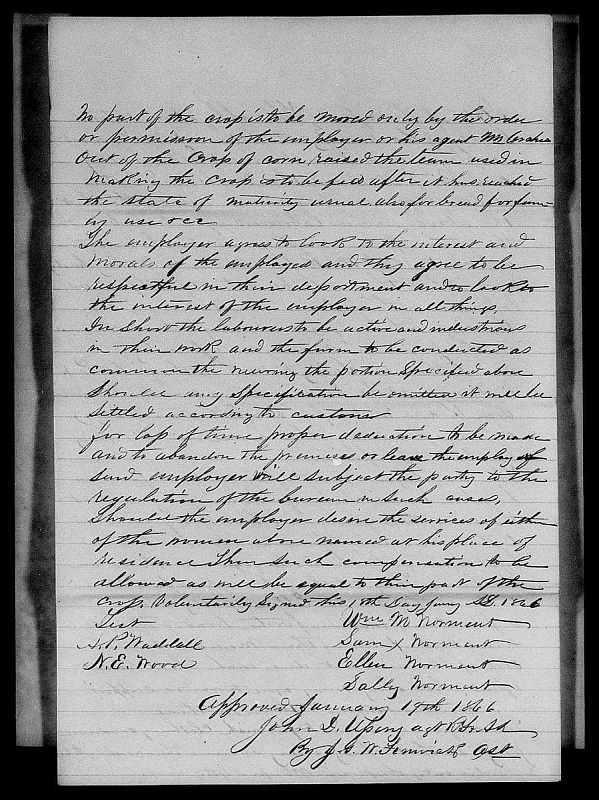 No part of the crop is to be moved only by the order
or permission of the employer or his agent Mr
Out of the Crop of corn raised the team used in
making the crop is to be fed after it has reached
the state of maturity usual also for bread for fam-
ily use &cc
The employer agrees to look to the interest and
morals of the employed and they agree to be
respectful in their deportment and to look to
the interest of the employer in all things.
In short the labourers to be active and industrious
in their work and the farm to be conducted as
common the receiving the portion specified above
Should any Specification be omitted it will be
settled according to customs
for loss of time proper deduction to be made
and to abandon the premises or leave the employ of
said employer will subject the party to the
regulation of the bureau in such cases,
Should the employer desire the services of eith
of the women above named at his place of
residence Then such compensation to be
allowed as will be equal to their part of the
crop. Voluntarily Signed this 18th Day Jany 1866
Test Wm M Norment
A. P. Waddell Sam X Norment
N. E. Wood Ellen Norment
Sally Norment
Approved January 19th 1866
John L. agt
By J. W. Fenwick Asst